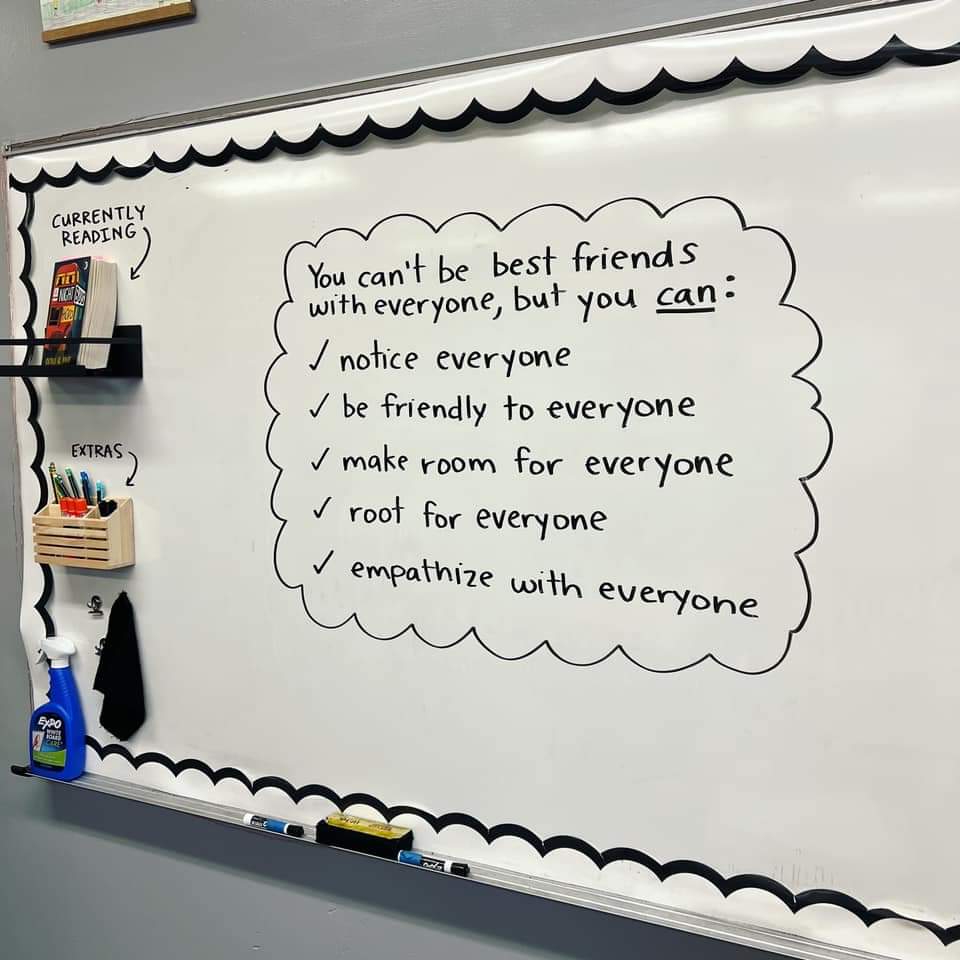 CURRENTLY
READING
NIGHT BUS
EXTRAS
You can't be best friends
with everyone, but you can:
✓ notice everyone
✓ be friendly to everyone
✓ make room for everyone
✓ root for everyone
✓ empathize with everyone
EXPO
WHITE
BOARD
CARE